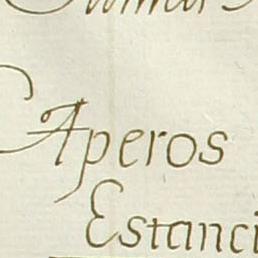 Aperos
Estanci